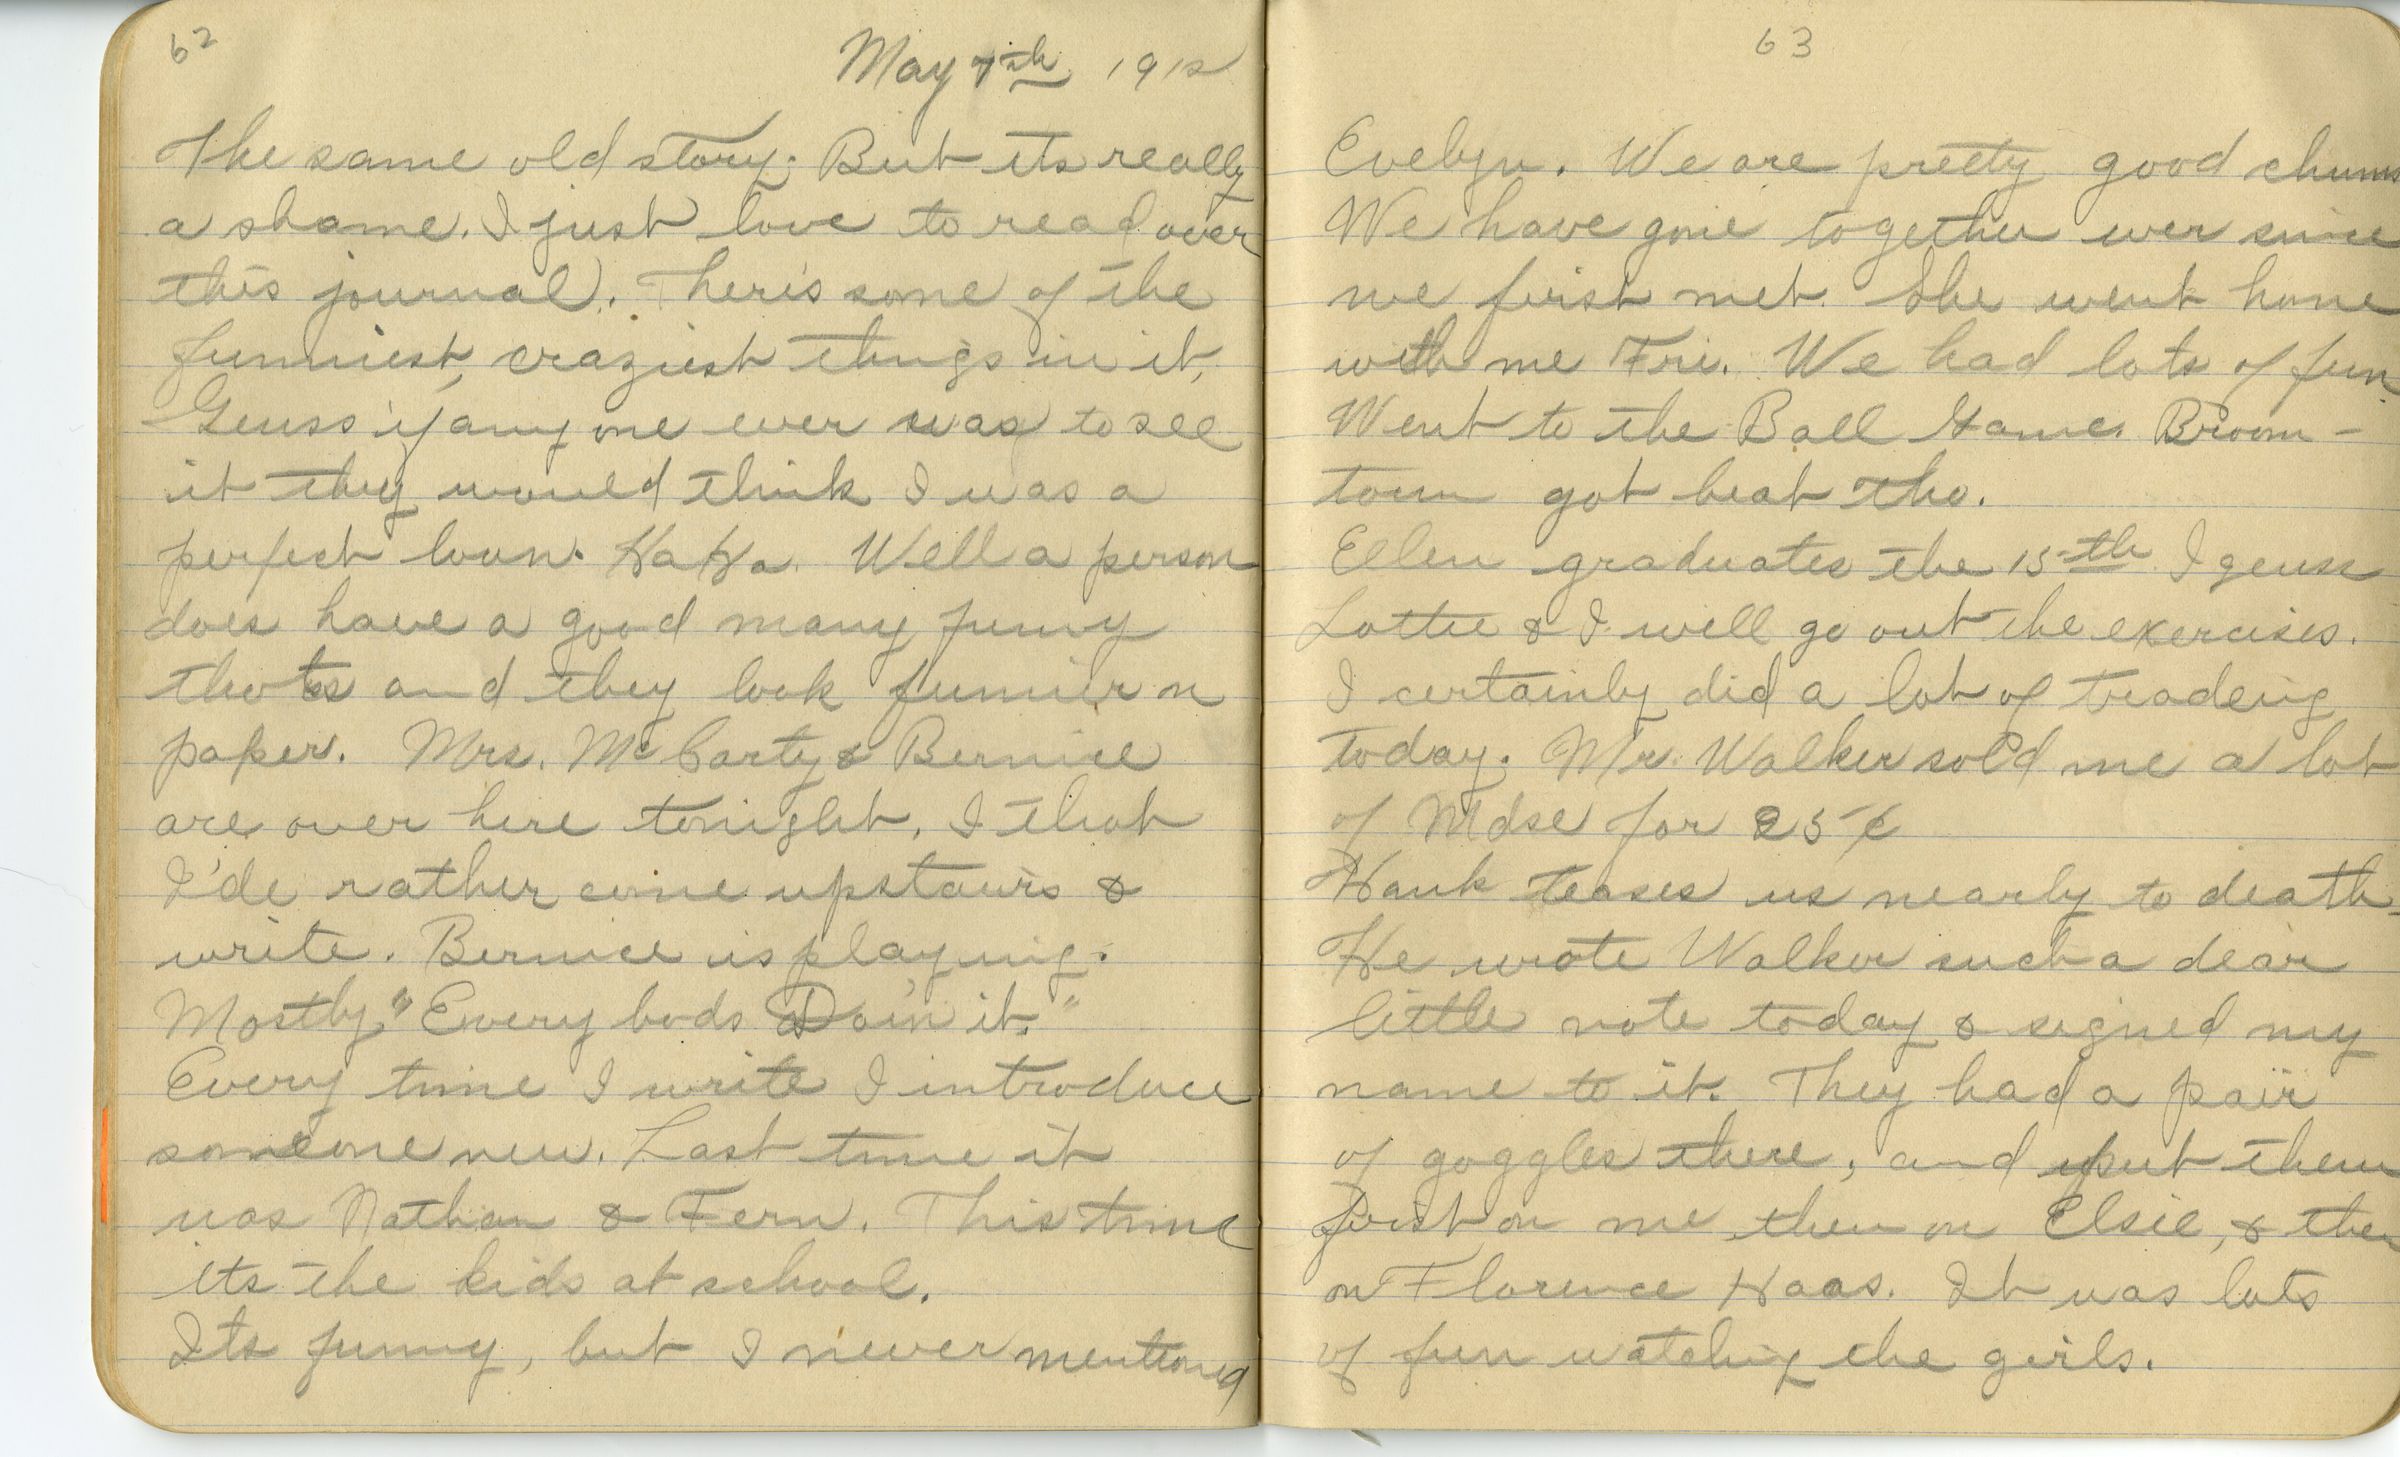 62
May 7th 1912
The same old story. But its really
a shame. I just love to read over
this journal. There's some of the
funniest, craziest things in it,
Geuss if any one ever was to see
it they would think I was a
perfect loun. Ha Ha. Well a person
does have a good many funny
thots and they look funnier n
paper. Mrs. McCarty & Bernice
are over here tonight, I thot
I'de rather come upstairs &
write. Bernice is playing.
Mostly "Every bods Doin it."
Every time I write I introduce
someone new. Last time it
was Nathan & Fern. This time
its the kids at school.
Its funny, but I never mentioned
63
Evelyn. We are pretty good chums
We have gone together ever since
we first met. She went home
with me Fri. We had lots of fun
Went to the Ball Game. Broom-
town got beat tho.
Ellen graduates the 15th I geuss
Lottie & I will go out the exercises.
I certainly did a lot of tradeing
today. Mr. Walker sold me a lot
of Mdse for 25¢
Hank teases us nearly to death.
He wrote Walker such a dear
little note today & signed my
name to it. They had a pair
of goggles there, and put them
first on me then on Elsie, & then
on Florence Haas. It was lots
of fun watching the girls.